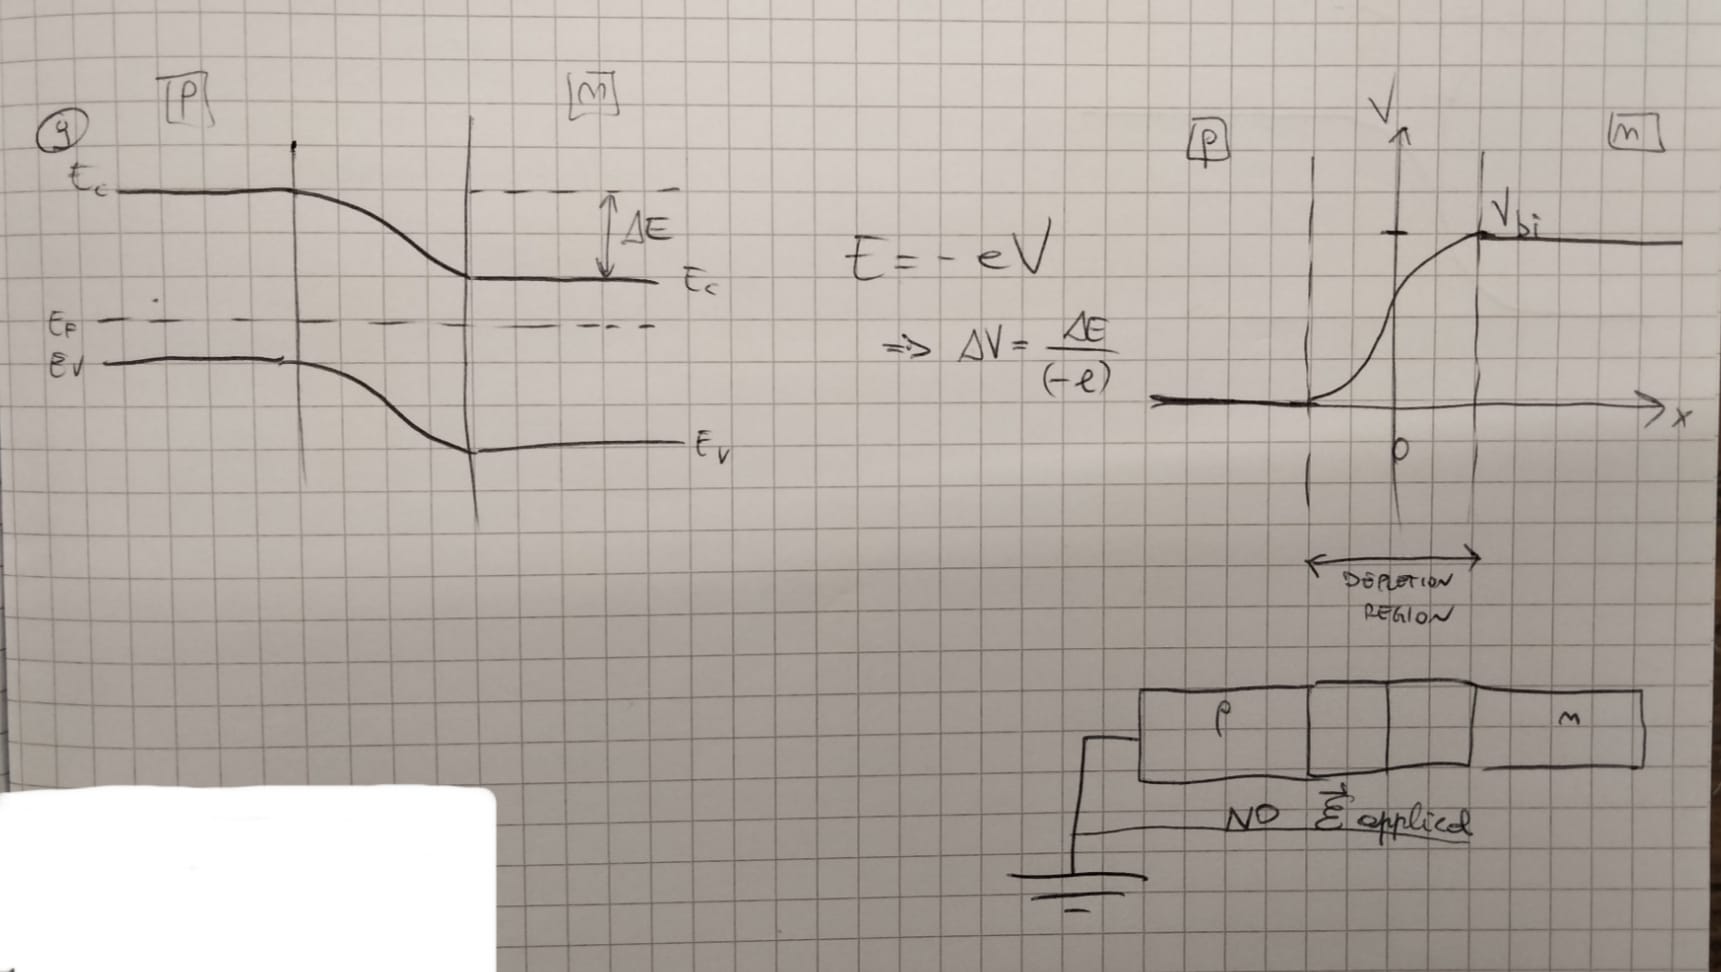 p
n
9
Ec
ΔE
Ec
EF
EV
EV
E = - eV
=> ΔV = ΔE / (-e)
V
p
n
Vbi
x
0
DEPLETION
REGION
p
n
NO ℰ⃗ applied